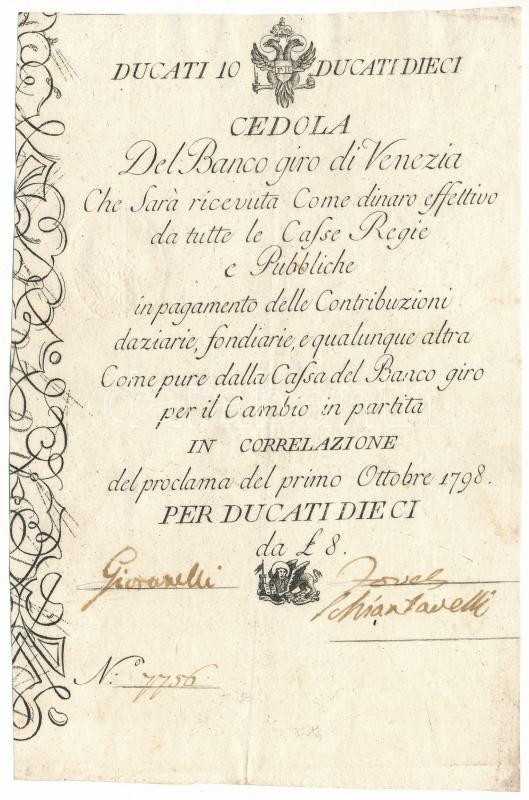 DUCATI 10 DUCATI DIECI
CEDOLA
Del Banco giro di Venezia
Che Sarà ricevuta Come dinaro effettivo
da tutte le Casse Regie
e Pubbliche
in pagamento delle Contribuzioni
daziarie, fondiarie, e qualunque altra
Come pure dalla Cassa del Banco giro
per il Cambio in partita
IN CORRELAZIONE
del proclama del primo Ottobre 1798.
PER DUCATI DIECI
da £ 8.
Giovanelli
Schiantarelli
N.º 7756